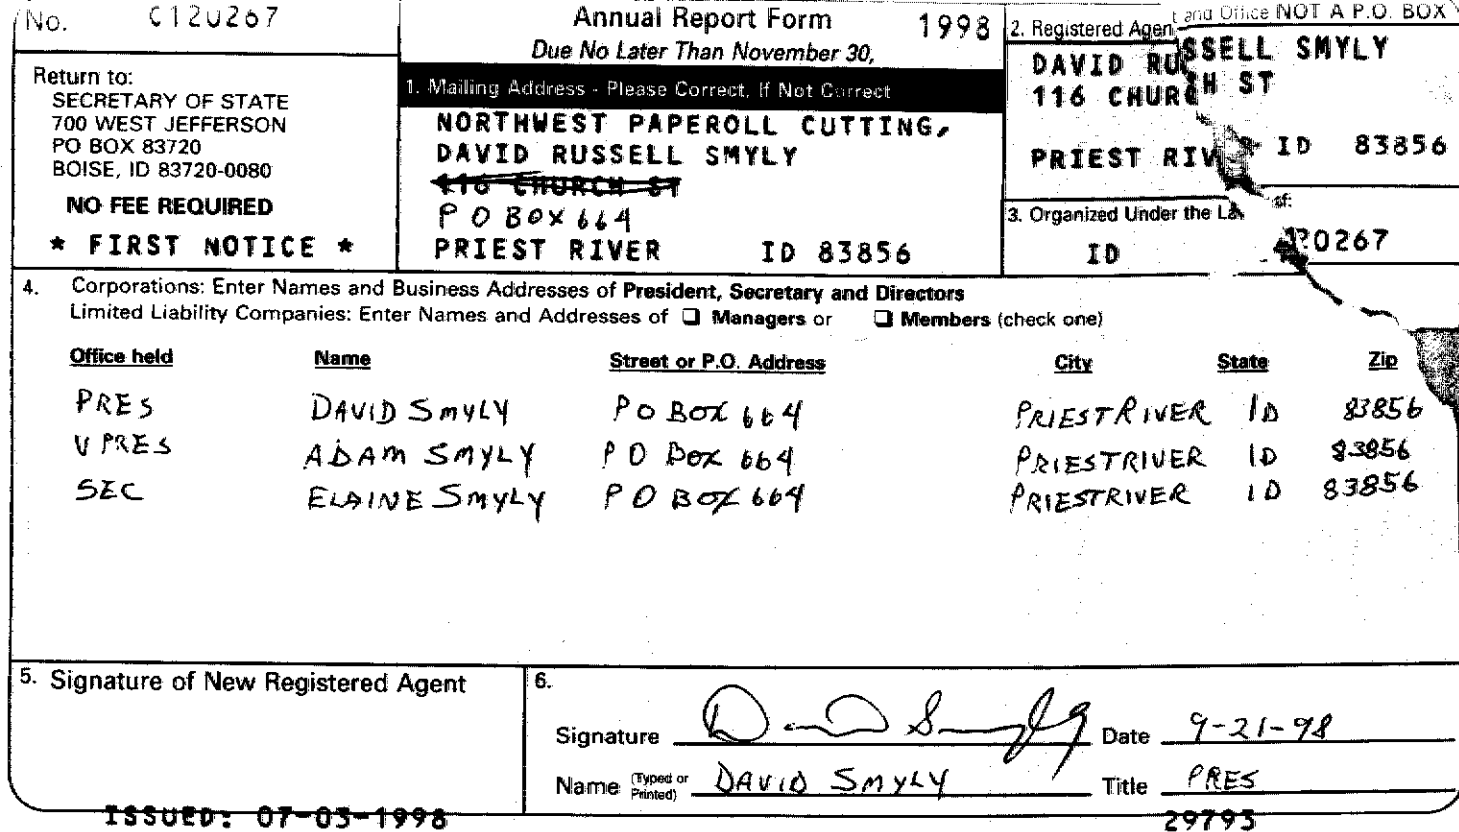 No. C120267
Annual Report Form 1998
Due No Later Than November 30,
Return to:
SECRETARY OF STATE
700 WEST JEFFERSON
PO BOX 83720
BOISE, ID 83720-0080
NO FEE REQUIRED
* FIRST NOTICE *
1. Mailing Address - Please Correct, If Not Correct
NORTHWEST PAPEROLL CUTTING,
DAVID RUSSELL SMYLY
116 CHURCH ST
P O BOX 664
PRIEST RIVER ID 83856
2. Registered Agent and Office NOT A P.O. BOX
DAVID RUSSELL SMYLY
116 CHURCH ST
PRIEST RIV ID 83856
3. Organized Under the La of:
ID 20267
4. Corporations: Enter Names and Business Addresses of President, Secretary and Directors
Limited Liability Companies: Enter Names and Addresses of ❑ Managers or ❑ Members (check one)
Office held Name Street or P.O. Address City State Zip
PRES DAVID SMYLY PO BOX 664 PRIESTRIVER ID 83856
V PRES ADAM SMYLY P O BOX 664 PRIESTRIVER ID 83856
SEC ELAINE SMYLY P O BOX 664 PRIESTRIVER ID 83856
5. Signature of New Registered Agent
6.
Signature David Smyly Date 9-21-98
Name (Typed or Printed) DAVID SMYLY Title PRES
ISSUED: 07-03-1998 29793